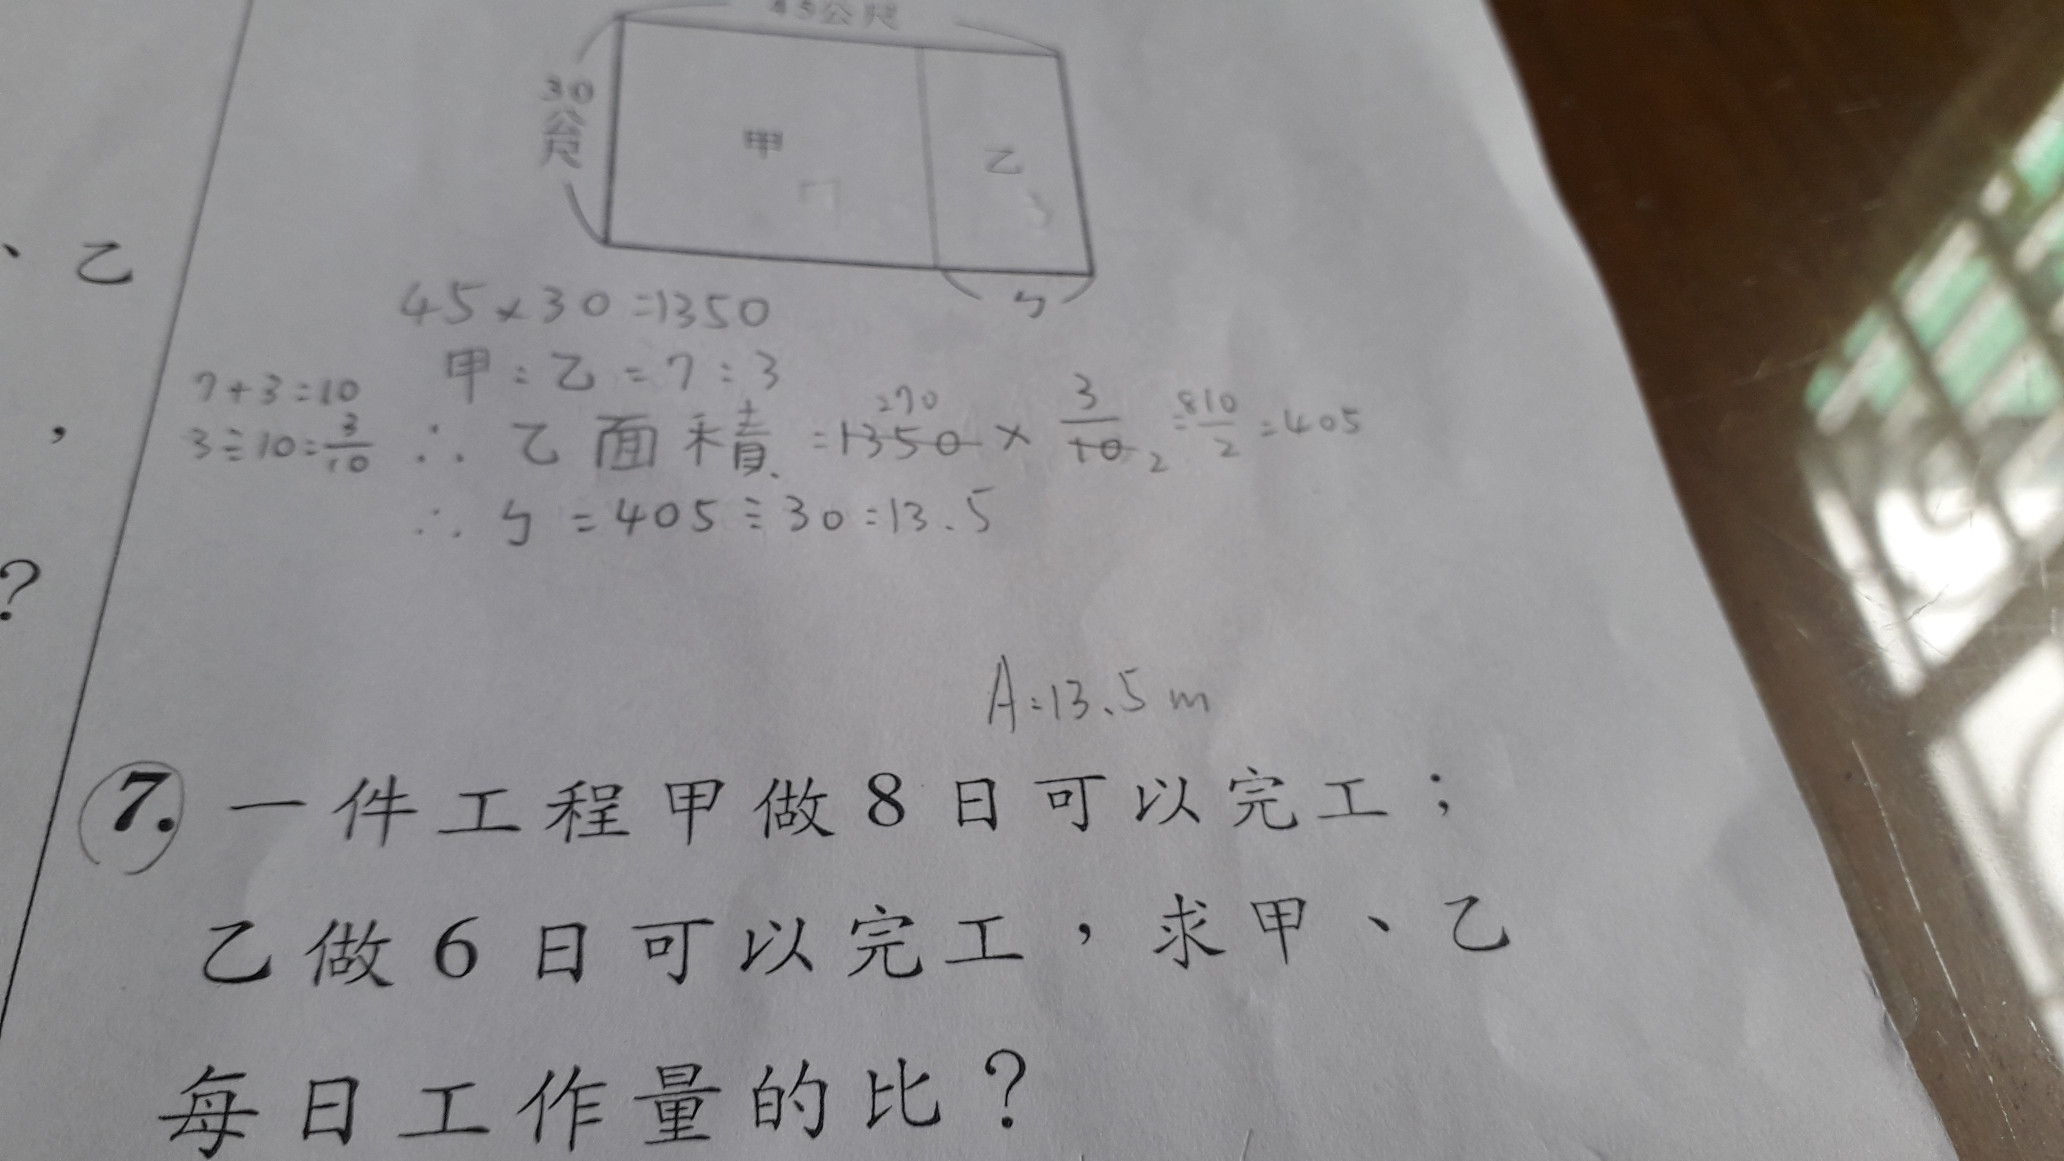 45公尺
30
公尺
甲
乙
ㄅ
、乙
，
？
45×30=1350
甲:乙=7:3
7+3=10
3÷10=3/10
∴乙面積=1350×3/10=810/2=405
270
2
∴ㄅ=405÷30=13.5
A:13.5m
7. 一件工程甲做8日可以完工；
乙做6日可以完工，求甲、乙
每日工作量的比？